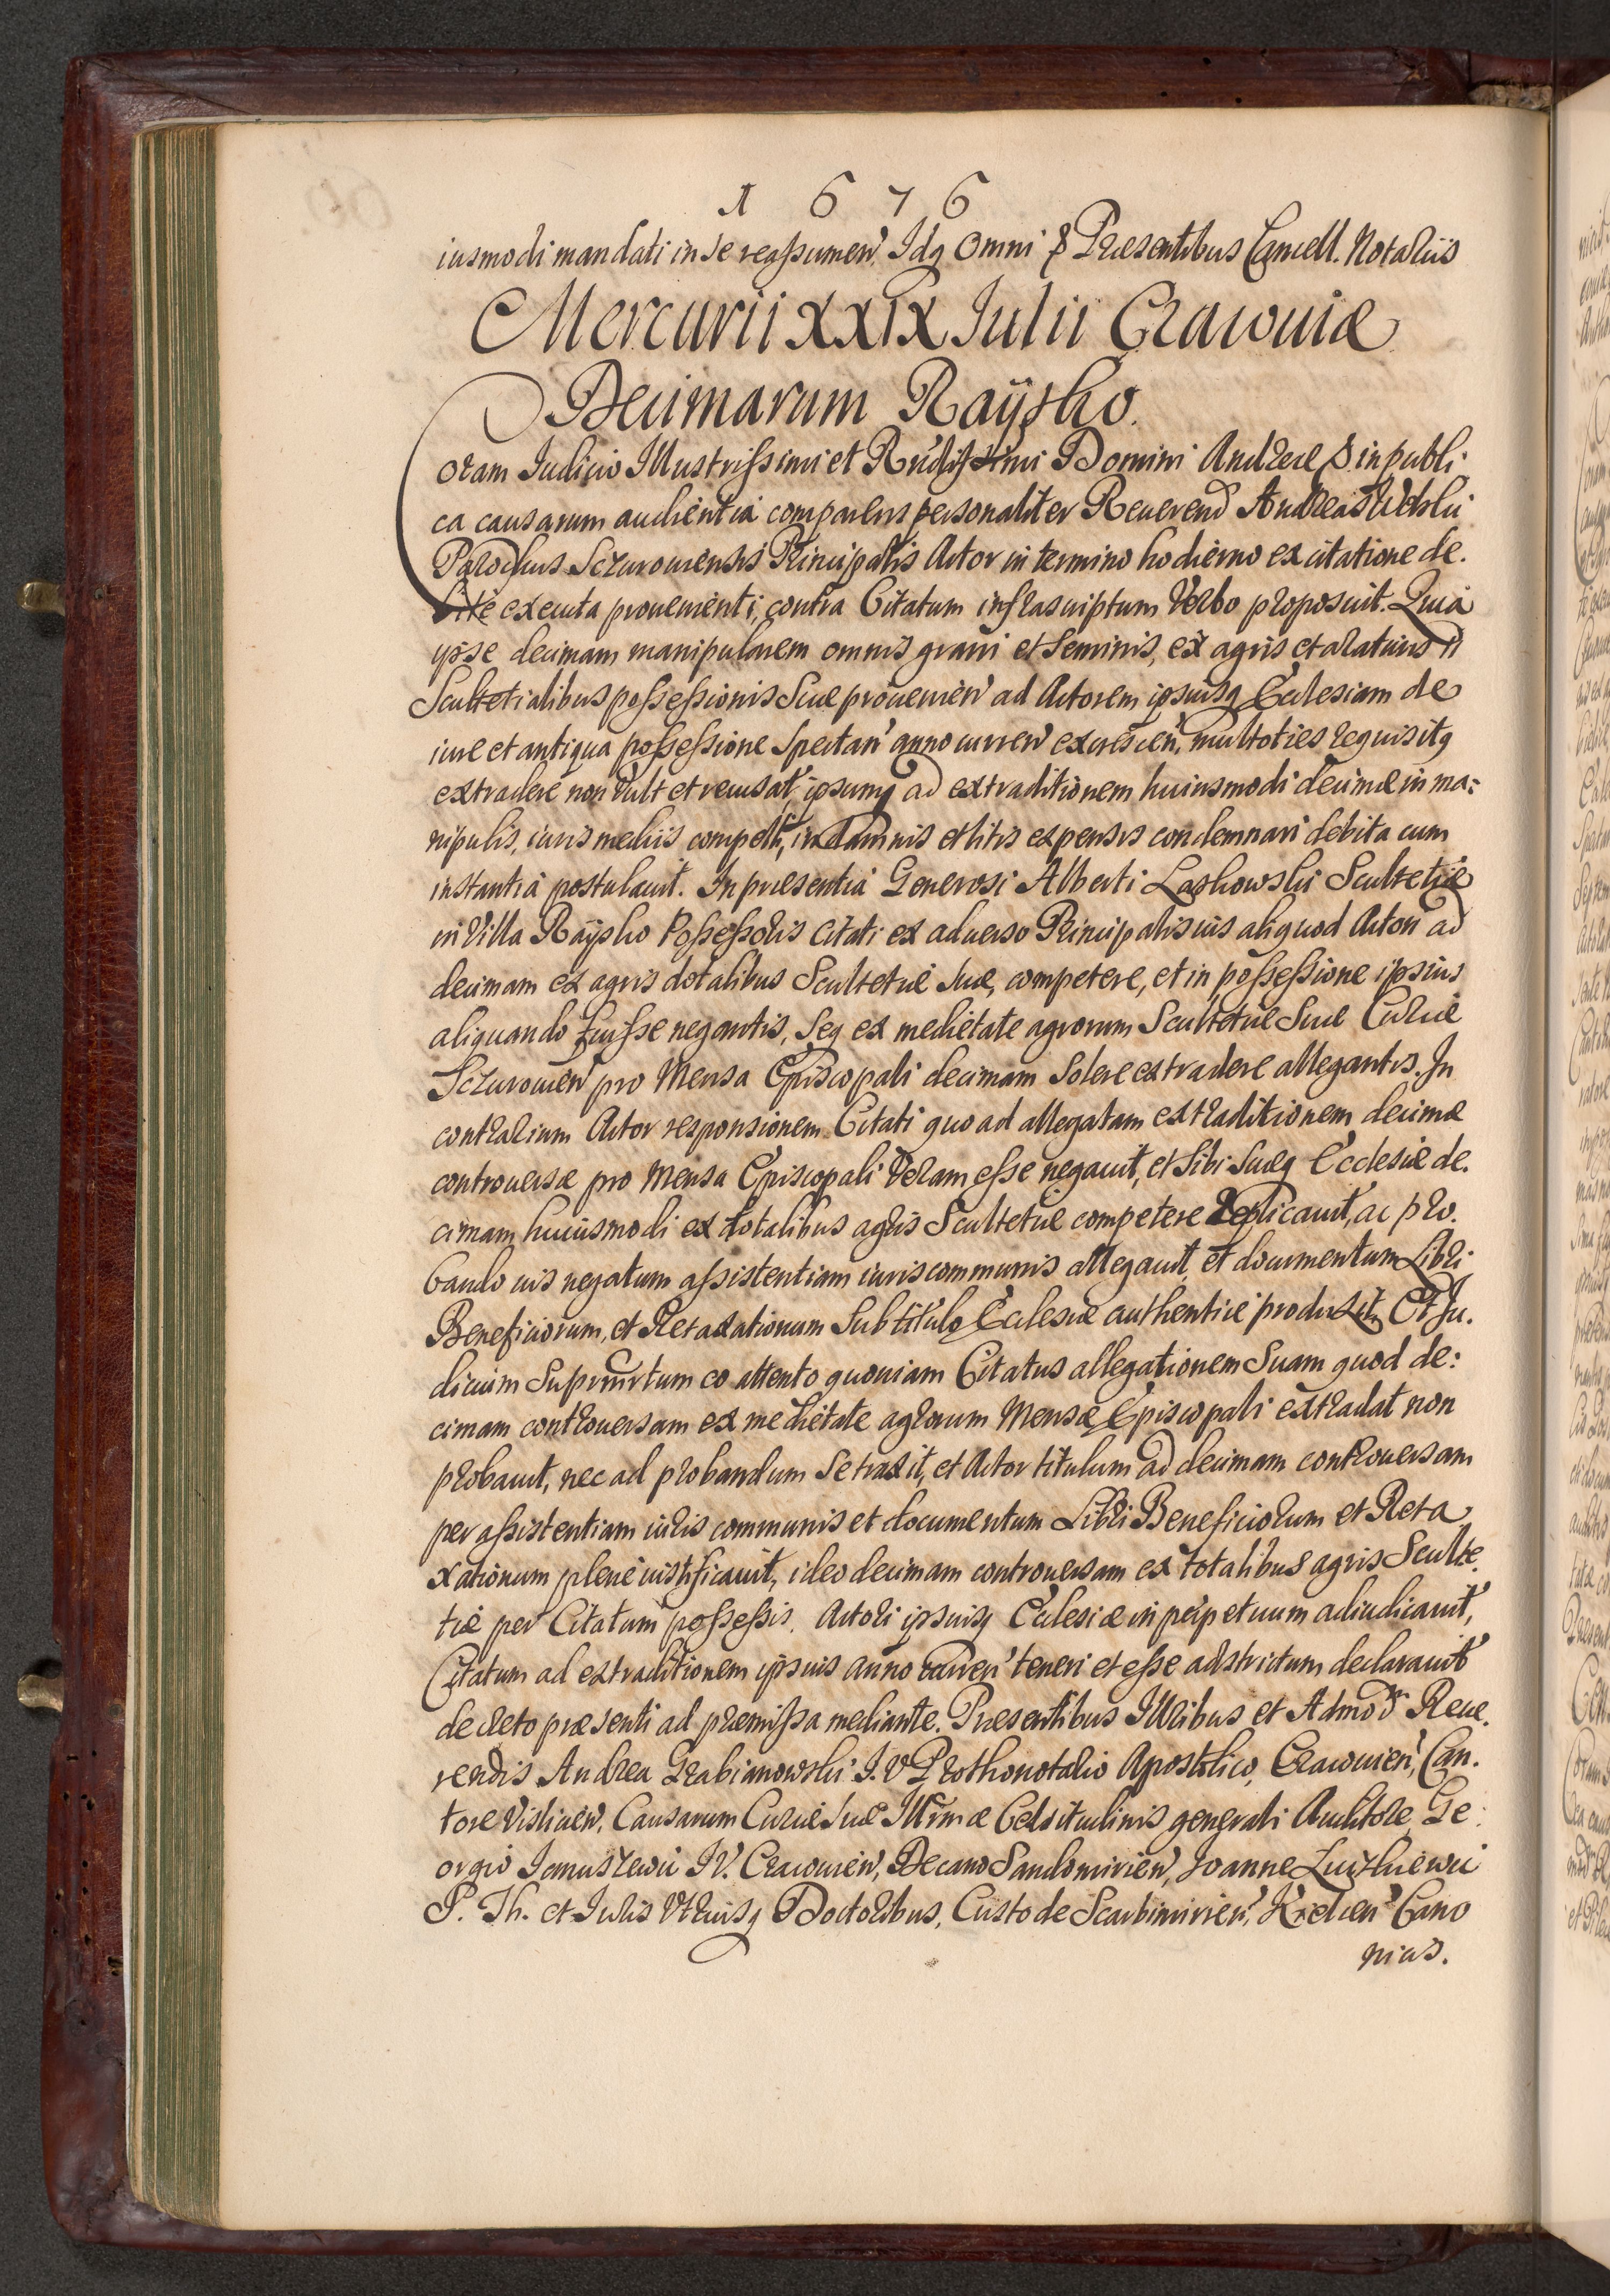 1 6 7 6
iusmodi mandati in se reassumen. Idq omni & Præsentibus Cancell. Notariis
Mercurii XXIX Iulii Cracouiæ
Decimarum Raÿsko.
Coram Iudicio Illustrissimi et Rndissimi Domini Andreæ & in publi-
ca causarum audientia comparens personaliter Reuerend Andreas
Parochus Sczurouiensis Principalis Actor in termino hodierno ex citatione de.
bite executa prouenienti, contra Citatum infrascriptum Verbo proposuit. Quia
ipse decimam manipularem omnis grani et seminis, ex agris et araturis
Scultetialibus possessionis Suæ prouenien ad Actorem ipsiusq Ecclesiam de
iure et antiqua possessione Spectan anno curren excrescen, multoties requisitq
extradere non Vult et recusat, ipsumq ad extraditionem huiusmodi decimæ in ma:
nipulis, iuris mediis compelli, in damnis et litis expensis condemnari debita cum
instantia postulauit. In præsentia Generosi Alberti Laskowski Scultetiæ
in Villa Raÿsko Possessoris Citati ex aduerso Principalis ius aliquod Actori ad
decimam ex agris dotalibus Scultetiæ Suæ, competere, et in possessione ipsius
aliquando fuisse negantis, Seq ex medietate agrorum Scultetiæ Suæ Curiæ
Sczurouien pro Mensa Episcopali decimam Solere extradere allegantis. In
contrarium Actor responsionem Citati quo ad allegatam extraditionem decimæ
controuersæ pro Mensa Episcopali Veram esse negauit, et Sibi Suæq Ecclesiæ de.
cimam huiusmodi ex dotalibus agris Scultetiæ competere Replicauit, ac pro.
bando ius negatum assistentiam iuris communis allegauit, et documentum Libri
Beneficiorum, et Retaxationum Sub titulo Ecclesiæ authenticè produxit. Et Iu.
dicium Suprmrtum eo attento quoniam Citatus allegationem Suam quod de:
cimam controuersam ex medietate agrorum Mensæ Episcopali extradat non
probauit, nec ad probandum Se traxit, et Actor titulum ad decimam controuersam
per assistentiam iuris communis et documentum Libri Beneficiorum et Reta
xationum plenè iustificauit, ideo decimam controuersam ex totalibus agris Sculte.
tiæ per Citatum possessis. Actori ipsiusq Ecclesiæ in perpetuum adiudicauit,
Citatum ad extraditionem ipsius anno curren teneri et esse adstrictum declarauit
decreto præsenti ad præmissa mediante. Præsentibus Illribus et Admod Reue.
rendis Andrea Grabianowski I. V P Prothonotario Apostolico, Cracouien, Can.
tore Vislicien, Causarum Curiæ Suæ Illrmæ Celsitudinis generali Auditore, Ge
orgio Ianuszewic IV. Cracouien, Decano Sandomirien, Ioanne
S. Th. et Iuris Vtriusq Doctoribus, Custode Scarbimirien, Kielcen Cano
nicis.